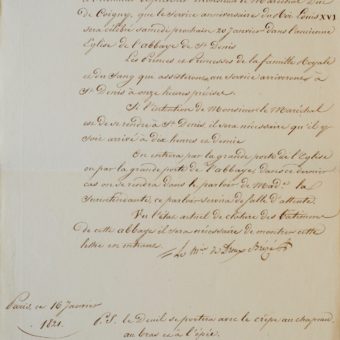 Monsieur le Maréchal Duc
de Coigny, que le service anniversaire du Roi Louis XVI
sera célébré samedi prochain 20 janvier dans l'ancienne
Eglise de l'abbaye de St Denis
Les Princes et Princesses de la famille Royale
et du Sang qui assisteront au service arriveront à
St Denis à onze heures précises.
Si l'intention de Monsieur le Maréchal
est de se rendre à St Denis, il sera nécessaire qu'il y
soit arrivé à dix heures et demie
On entrera par la grande porte de l'Eglise
ou par la grande porte de l'abbaye dans ce dernier
cas on se rendra dans le parloir de Made la
Surintendante, ce parloir servira de salle d'attente.
Vu l'état actuel de clôture des bâtimens
de cette abbaye il sera nécessaire de montrer cette
lettre en entrant.
Le Mis de Dreux Brézé
Paris, ce 16 Janvier
1821.
P.S. le Deuil se portera avec le crêpe au chapeau
au bras et à l'épée.